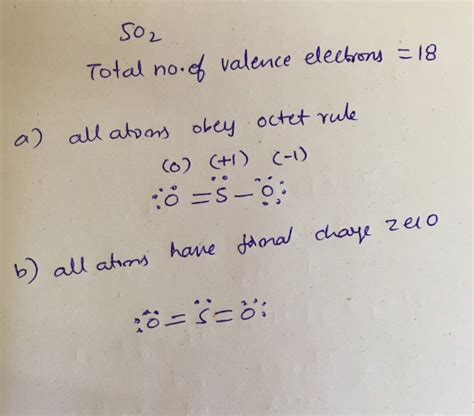 SO₂
Total no. of valence electrons = 18
a) all atoms obey octet rule
(0) (+1) (-1)
:Ö = S̈ – Ö:
b) all atoms have formal charge zero
:Ö = S̈ = Ö: